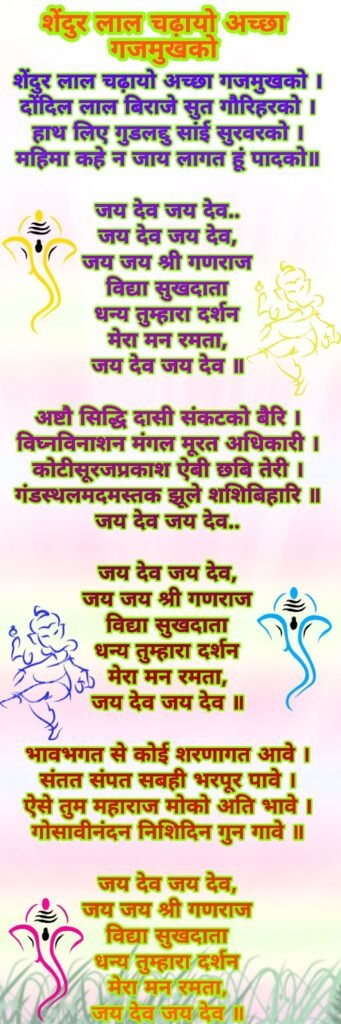 शेंदुर लाल चढ़ायो अच्छा
गजमुखको
शेंदुर लाल चढ़ायो अच्छा गजमुखको ।
दोंदिल लाल बिराजे सुत गौरिहरको ।
हाथ लिए गुडलद्दु सांई सुरवरको ।
महिमा कहे न जाय लागत हूं पादको॥
जय देव जय देव..
जय देव जय देव,
जय जय श्री गणराज
विद्या सुखदाता
धन्य तुम्हारा दर्शन
मेरा मन रमता,
जय देव जय देव ॥
अष्टौ सिद्धि दासी संकटको बैरि ।
विघ्नविनाशन मंगल मूरत अधिकारी ।
कोटीसूरजप्रकाश ऐबी छबि तेरी ।
गंडस्थलमदमस्तक झूले शशिबिहारि ॥
जय देव जय देव..
जय देव जय देव,
जय जय श्री गणराज
विद्या सुखदाता
धन्य तुम्हारा दर्शन
मेरा मन रमता,
जय देव जय देव ॥
भावभगत से कोई शरणागत आवे ।
संतत संपत सबही भरपूर पावे ।
ऐसे तुम महाराज मोको अति भावे ।
गोसावीनंदन निशिदिन गुन गावे ॥
जय देव जय देव,
जय जय श्री गणराज
विद्या सुखदाता
धन्य तुम्हारा दर्शन
मेरा मन रमता,
जय देव जय देव ॥